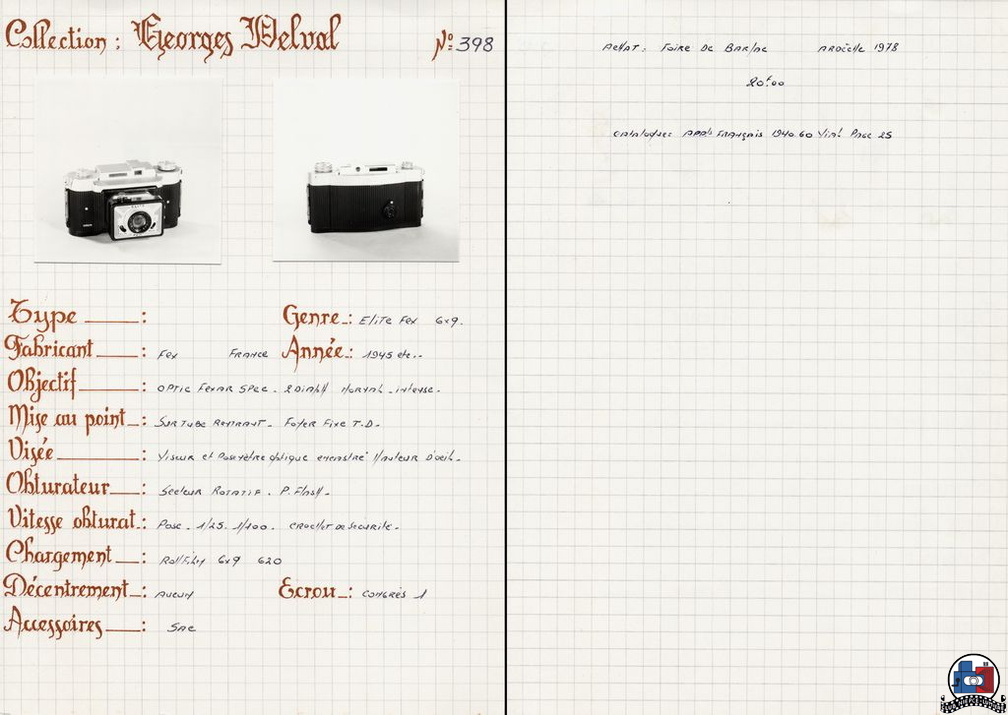 Collection : Georges Delval
N°: 398
Type : Genre : Elite Fex 6x9.
Fabricant : Fex France Année : 1945 etc..
Objectif : optic Fexar Spec. 2 Diaph Normal. intense.
Mise au point : Sur Tube Rentrant. Foyer Fixe T.D.
Visée : Viseur et Posemètre optique encastré Hauteur D'oeil.
Obturateur : Secteur Rotatif. P. Flash.
Vitesse obturat. : Pose. 1/25. 1/100. crochet de securite.
Chargement : Roll Film 6x9 620
Décentrement : Aucun Ecrou : Congrès 1
Accessoires : Sac
Achat : Foire De Barjac 1978
20F00
Catalogues App's Français 1940.60 Page 25